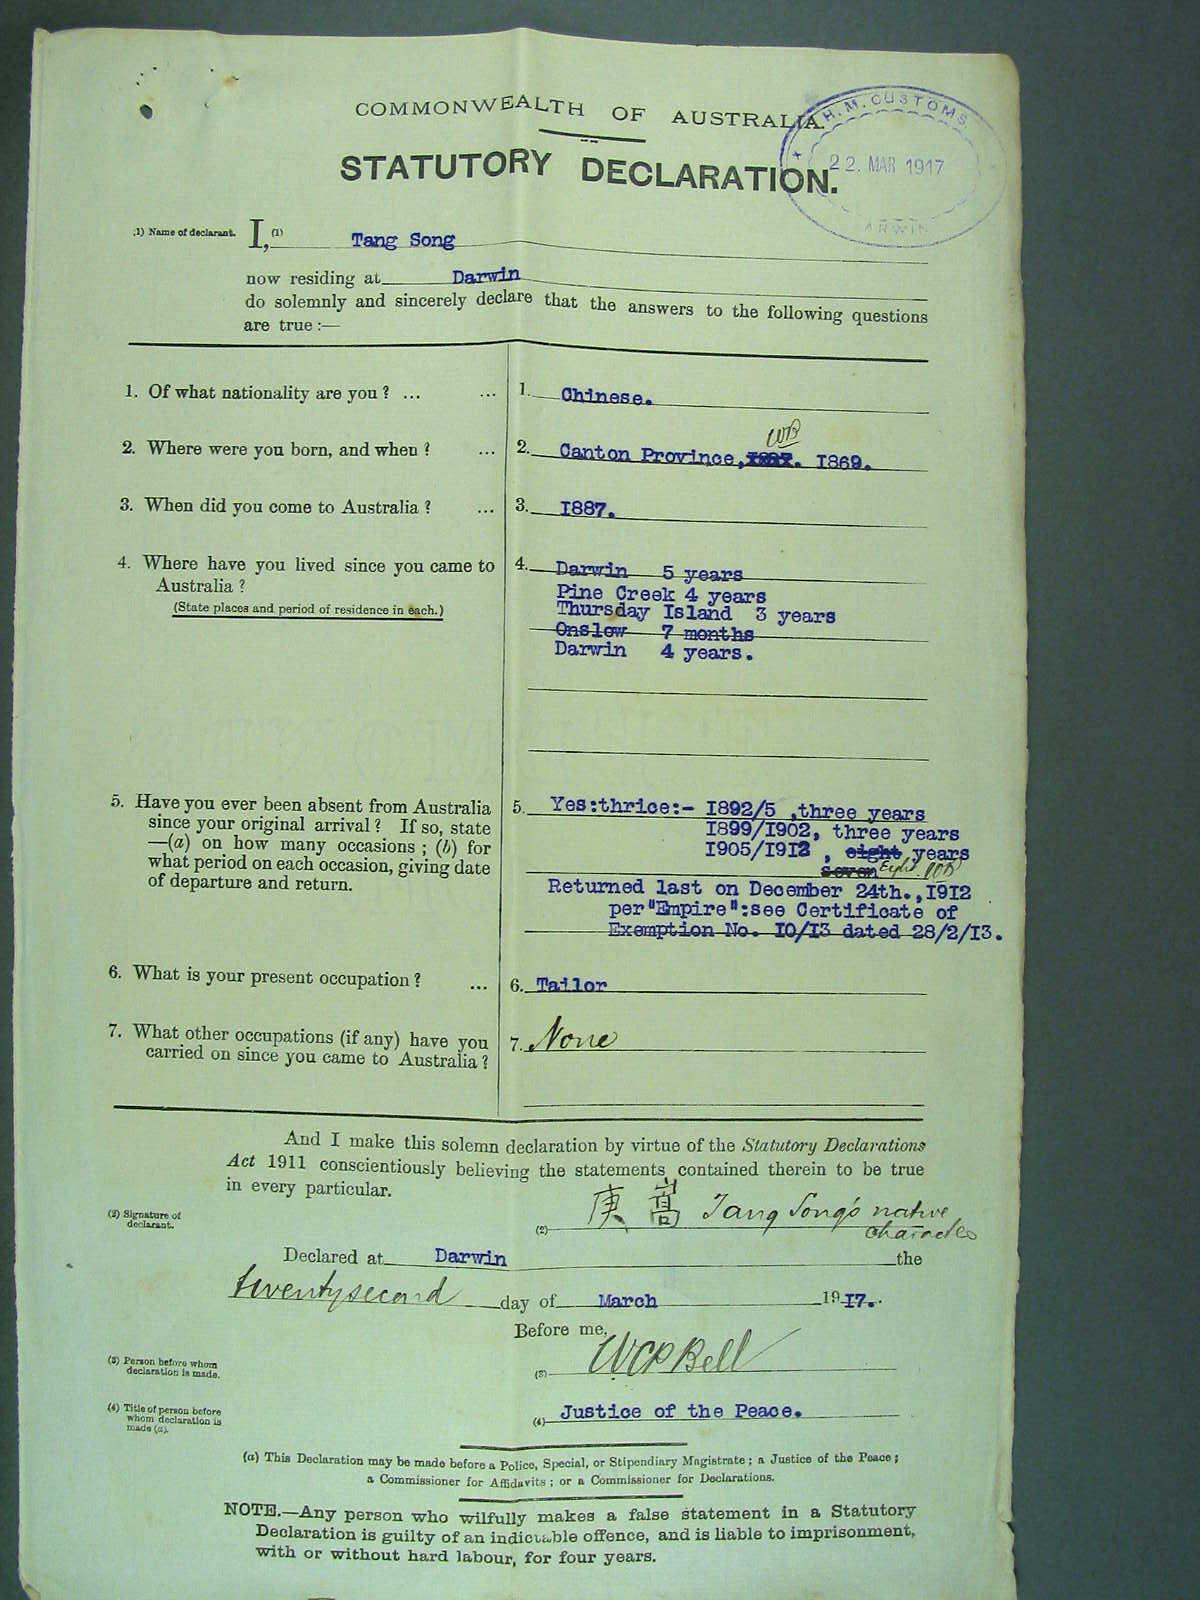 COMMONWEALTH OF AUSTRALIA.
H.M. CUSTOMS
22. MAR 1917
ARWIN
STATUTORY DECLARATION.
(1) Name of declarant. I, (1) Tang Song
now residing at Darwin
do solemnly and sincerely declare that the answers to the following questions
are true :—
1. Of what nationality are you ? ... ... 1. Chinese.
WB
2. Where were you born, and when ? ... 2. Canton Province, 1887. 1869.
3. When did you come to Australia ? ... 3. 1887.
4. Where have you lived since you came to
Australia ?
(State places and period of residence in each.)
4. Darwin 5 years
Pine Creek 4 years
Thursday Island 3 years
Onslow 7 months
Darwin 4 years.
5. Have you ever been absent from Australia
since your original arrival ? If so, state
—(a) on how many occasions ; (b) for
what period on each occasion, giving date
of departure and return.
5. Yes:thrice:- 1892/5 ,three years
1899/1902, three years
1905/1912 , eight years
seven Eight. WB
Returned last on December 24th.,1912
per "Empire":see Certificate of
Exemption No. 10/13 dated 28/2/13.
6. What is your present occupation ? ... 6. Tailor
7. What other occupations (if any) have you
carried on since you came to Australia ?
7. None
And I make this solemn declaration by virtue of the Statutory Declarations
Act 1911 conscientiously believing the statements contained therein to be true
in every particular.
(2) Signature of
declarant.
(2) 庚 嵩 Tang Song's native
characters
Declared at Darwin the
twentysecond day of March 19 17..
Before me,
(3) Person before whom
declaration is made.
(3) WCPBell
(4) Title of person before
whom declaration is
made (a).
(4) Justice of the Peace.
(a) This Declaration may be made before a Police, Special, or Stipendiary Magistrate ; a Justice of the Peace ;
a Commissioner for Affidavits ; or a Commissioner for Declarations.
NOTE.—Any person who wilfully makes a false statement in a Statutory
Declaration is guilty of an indictable offence, and is liable to imprisonment,
with or without hard labour, for four years.